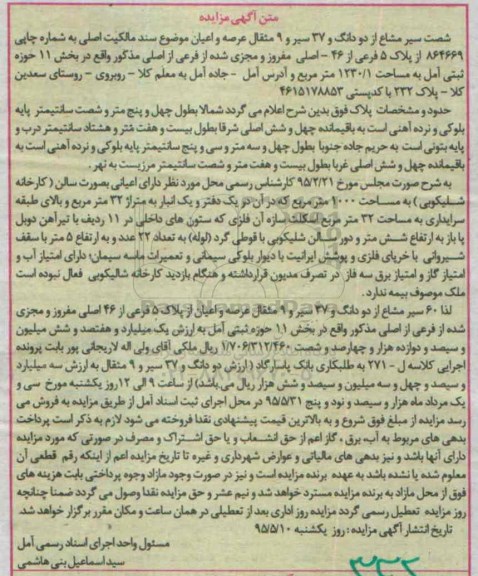 متن آگهی مزایده
شصت سیر مشاع از دو دانگ و ۳۷ سیر و ۹ مثقال عرصه و اعیان موضوع سند مالکیت اصلی به شماره چاپی
۸۶۴۶۶۹ از پلاک ۵ فرعی از ۴۶ - اصلی مفروز و مجزی شده از فرعی از اصلی مذکور واقع در بخش ۱۱ حوزه
ثبتی آمل به مساحت ۱۲۳۰/۱ متر مربع و آدرس آمل - جاده آمل به معلم کلا - روبروی - روستای سعدین
کلا - پلاک ۲۳۲ با کدپستی ۴۶۱۵۱۷۸۸۵۳
حدود و مشخصات پلاک فوق بدین شرح اعلام می گردد شمالا بطول چهل و پنج متر و شصت سانتیمتر پایه
بلوکی و نرده آهنی است به باقیمانده چهل و شش اصلی شرقا بطول بیست و هفت متر و هشتاد سانتیمتر درب و
پایه بتونی است به حریم جاده جنوبا بطول چهل و سه متر و سی و پنج سانتیمتر پایه بلوکی و نرده آهنی است به
باقیمانده چهل و شش اصلی غربا بطول بیست و هفت متر و شصت سانتیمتر مرزیست به نهر.
به شرح صورت مجلس مورخ ۹۵/۲/۲۱ کارشناس رسمی محل مورد نظر دارای اعیانی بصورت سالن (کارخانه
شلیکوبی) به مساحت ۱۰۰۰ متر مربع که در آن در یک دفتر و یک انبار به متراژ ۳۲ متر مربع و بالای طبقه
سرایداری به مساحت ۳۲ متر مربع اسکلت سازه آن فلزی که ستون های داخلی در ۱۱ ردیف با تیرآهن دوبل
پا باز به ارتفاع شش متر و دور سالن شلیکوبی با قوطی گرد (لوله) به تعداد ۲۲ عدد و به ارتفاع ۵ متر با سقف
شیروانی با خرپای فلزی و پوشش ایرانیت با دیوار بلوکی سیمانی و تعمیرات ماسه سیمان؛ دارای امتیاز آب و
امتیاز گاز و امتیاز برق سه فاز در تصرف مدیون قرارداشته و هنگام بازدید کارخانه شالیکوبی فعال نبوده است
ملک موصوف بیمه ندارد.
لذا ۶۰ سیر مشاع از دو دانگ و ۳۷ سیر و ۹ مثقال عرصه و اعیان از پلاک ۵ فرعی از ۴۶ اصلی مفروز و مجزی
شده از فرعی از اصلی مذکور واقع در بخش ۱۱ حوزه ثبتی آمل به ارزش یک میلیارد و هفتصد و شش میلیون
و سیصد و دوازده هزار و چهارصد و شصت ۱/۷۰۶/۳۱۲/۴۶۰ ریال ملکی آقای ولی اله لاریجانی پور بابت پرونده
اجرایی کلاسه ل - ۲۷۱ به طلبکاری بانک پاسارگاد (ارزش دو دانگ و ۳۷ سیر و ۹ مثقال به ارزش سه میلیارد
و سیصد و چهل و سه میلیون و سیصد و شش هزار ریال می باشد) از ساعت ۹ الی ۱۲ روز یکشنبه مورخ سی و
یک مرداد ماه هزار و سیصد و نود و پنج ۹۵/۵/۳۱ در محل اجرای ثبت اسناد آمل از طریق مزایده به فروش می
رسد مزایده از مبلغ فوق شروع و به بالاترین قیمت پیشنهادی نقدا فروخته می شود لازم به ذکر است پرداخت
بدهی های مربوط به آب، برق، گاز اعم از حق انشعاب و یا حق اشتراک و مصرف در صورتی که مورد مزایده
دارای آنها باشد و نیز بدهی های مالیاتی و عوارض شهرداری و غیره تا تاریخ مزایده اعم از اینکه رقم قطعی آن
معلوم شده یا نشده باشد به عهده برنده مزایده است و نیز در صورت وجود مازاد وجوه پرداختی بابت هزینه های
فوق از محل مازاد به برنده مزایده مسترد خواهد شد و نیم عشر و حق مزایده نقدا وصول می گردد ضمنا چنانچه
روز مزایده تعطیل رسمی گردد مزایده روز اداری بعد از تعطیلی در همان ساعت و مکان مقرر برگزار خواهد شد.
تاریخ انتشار آگهی مزایده: روز یکشنبه ۹۵/۵/۱۰
مسئول واحد اجرای اسناد رسمی آمل
سید اسماعیل بنی هاشمی